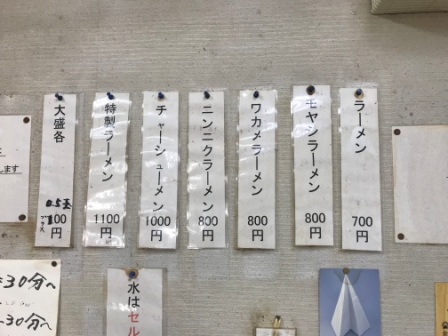 ラーメン 700円
モヤシラーメン 800円
ワカメラーメン 800円
ニンニクラーメン 800円
チャーシューメン 1000円
特製ラーメン 1100円
大盛各 0.5玉 100円
します
30分へ
30分へ
水はセル